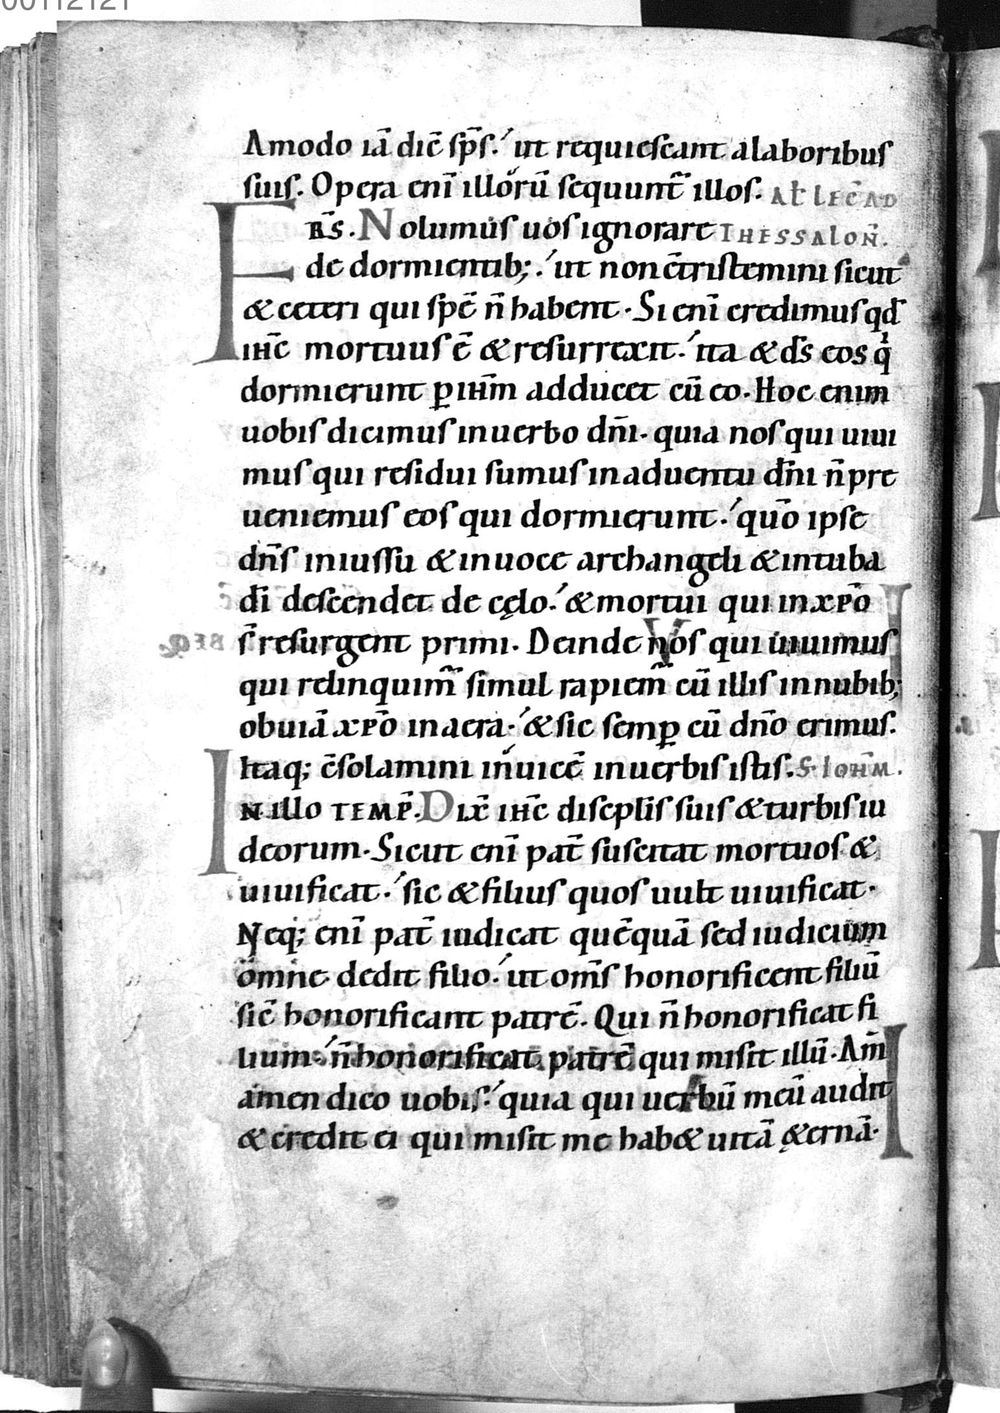 00112121
Amodo iā dic̄ sp̄s. ut requiescant alaboribus
suis. Opera enī illorū sequunt̄ illos. Aƚ LEC̄ AD
FR̄S. Nolumus uos ignorare THESSALON̄.
de dormientib; . ut non c̄tristemini sicut
& ceteri qui spē n̄ habent. Si enī credimus qd̄
ihc̄ mortuus ē & resurrexit. ita & d̄s eos q̇
dormierunt ꝑ ihm̄ adducet cū eo. Hoc enim
uobis dicimus inuerbo dn̄i. quia nos qui uiui
mus qui residui sumus inaduentu dn̄i n̄ pre
ueniemus eos qui dormierunt. quō ipse
dn̄s iniussu & inuoce archangeli & intuba
dī descendet de cęlo. & mortui qui inxp̄o
s̄ resurgent primi. Deinde nos qui uiuimus
qui relinquim̄ simul rapiem̄ cū illis innubib;
obuiā xp̄o inaera. & sic semꝑ cū dn̄o erimus.
Itaq; c̄solamini inuicē inuerbis istis. S. IOHM̄.
IN illo TEMP̄. Dix̄ ihc̄ discplīs suis & turbis iu
deorum. Sicut enī pat̄ suscitat mortuos &
uiuificat. sic & filius quos uult uiuificat.
Neq; enī pat̄ iudicat quēquā sed iudicium
omne dedit filio. ut om̄s honorificent filiū
sic̄ honorificant patrē. Qui n̄ honorificat fi
lium. n̄ honorificat patrē qui misit illū. Am̄
amen dico uobis. quia qui uerbū meū audit
& credit ei qui misit me hab& uitā ę&ernā.